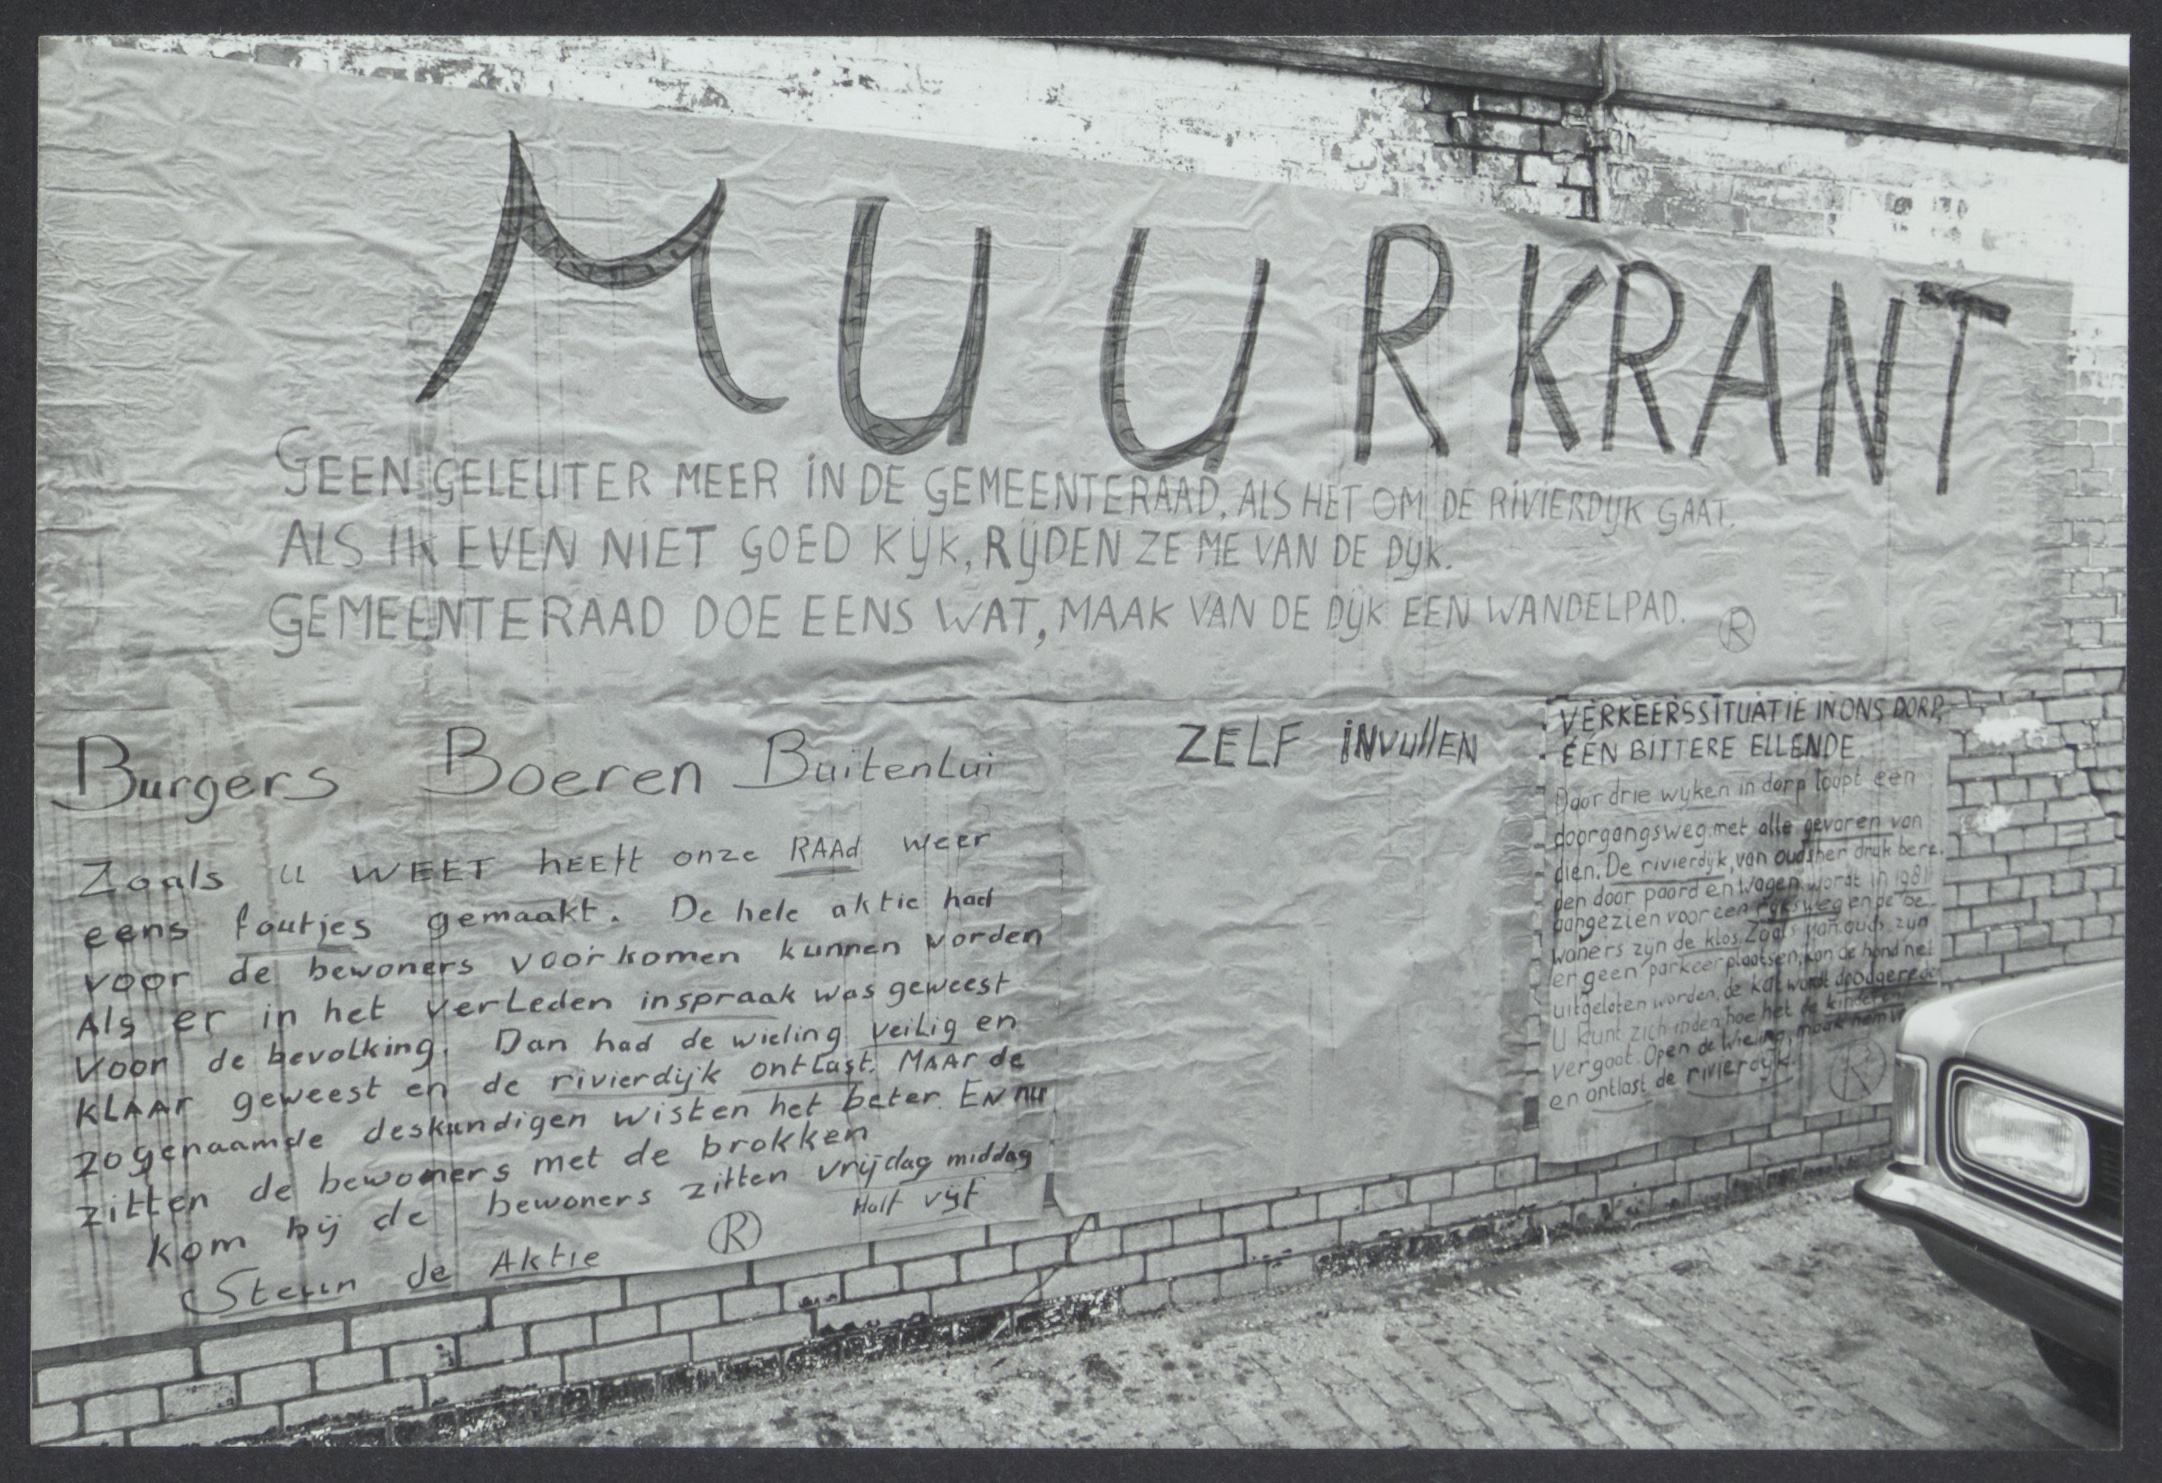 MUURKRANT
GEEN GELEUTER MEER IN DE GEMEENTERAAD, ALS HET OM DE RIVIERDIJK GAAT.
ALS IK EVEN NIET GOED KIJK, RIJDEN ZE ME VAN DE DIJK.
GEMEENTERAAD DOE EENS WAT, MAAK VAN DE DIJK EEN WANDELPAD. R
Burgers Boeren Buitenlui
Zoals u WEET hEEft onze RAAd weer
eens foutjes gemaakt. De hele aktie had
voor de bewoners voorkomen kunnen worden
Als er in het verleden inspraak was geweest
voor de bevolking. Dan had de wieling veilig en
KLAAr geweest en de rivierdijk ontlast. MAAR de
zogenaamde deskundigen wisten het beter. EN nu
zitten de bewoners met de brokken
kom bij de bewoners zitten vrijdag middag
Half vijf
Steun de Aktie R
ZELF iNvullEN
VERKEERSSITUATIE IN ONS DORP,
ÉÉN BITTERE ELLENDE
Door drie wijken in dorp loopt een
doorgangsweg, met alle gevaren van
dien. De rivierdijk, van oudsher druk bere-
den door paard en wagen, wordt in 1981
aangezien voor een rijksweg en de be-
woners zijn de klos. Zoals van ouds zijn
er geen parkeerplaatsen, kan de hond niet
uitgelaten worden, de kat wordt doodgereden
U kunt zich inden hoe het de kinderen
vergaat. Open de Wieling, maak hem
en ontlast de rivierdijk. R